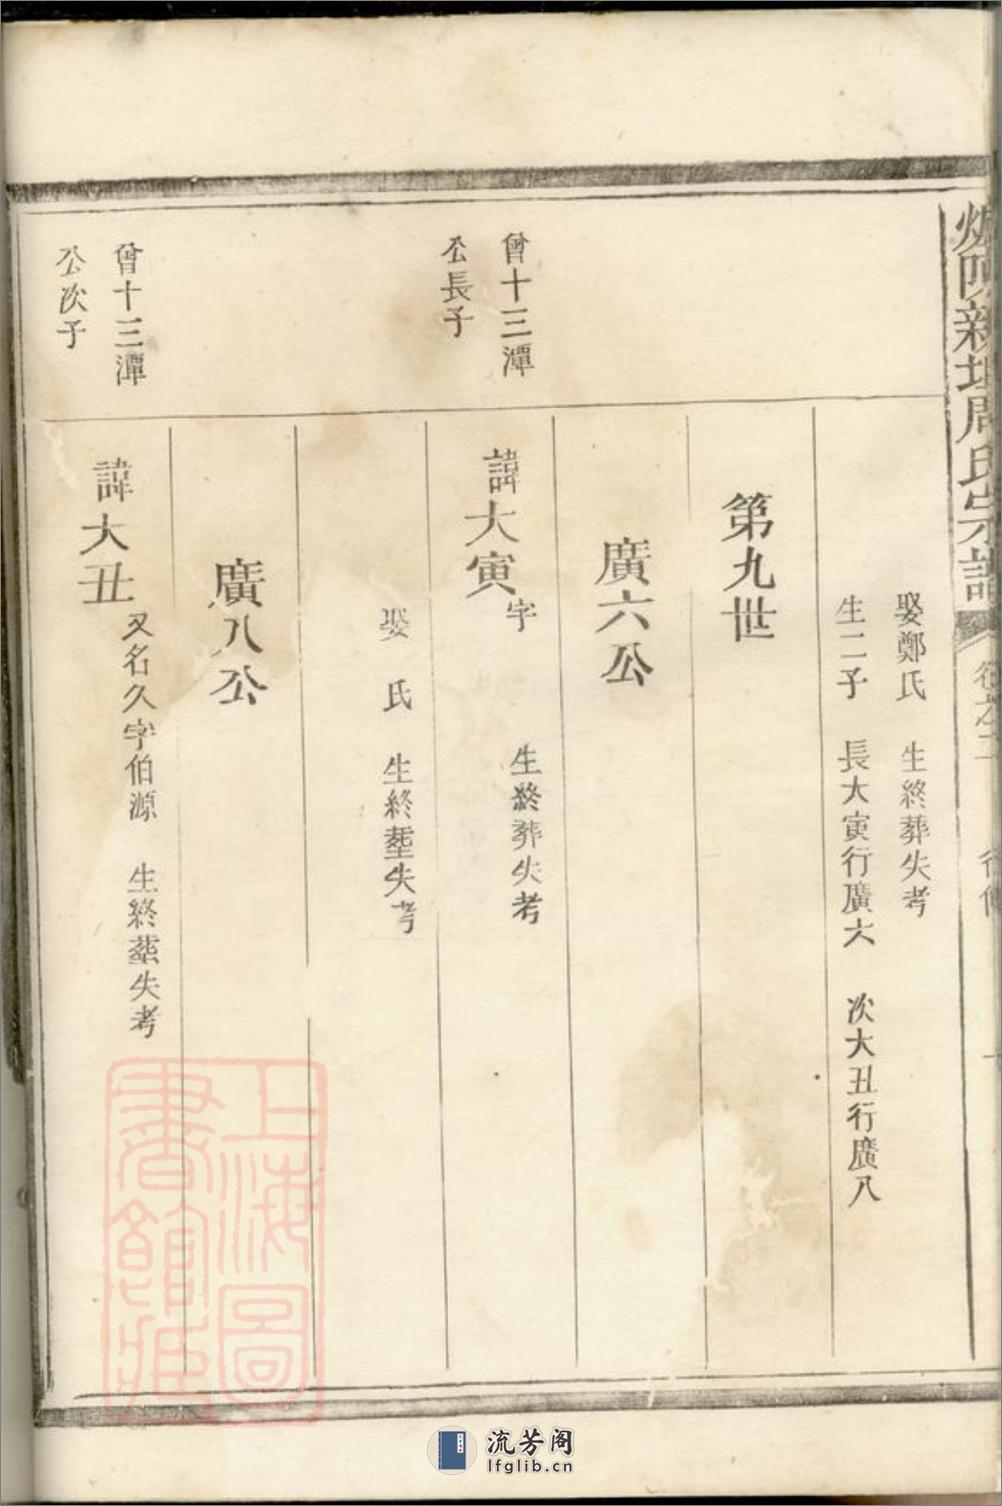 新堤周氏宗譜
卷之二
行傳
娶鄭氏 生終葬失考
生二子 長大寅行廣六 次大丑行廣八
第九世
廣六公
曾十三潭
公長子
諱大寅字 生終葬失考
娶 氏 生終塟失考
廣八公
曾十三潭
公次子
諱大丑又名久字伯源 生終塟失考
上海圖
書館藏
流芳阁
lfglib.cn